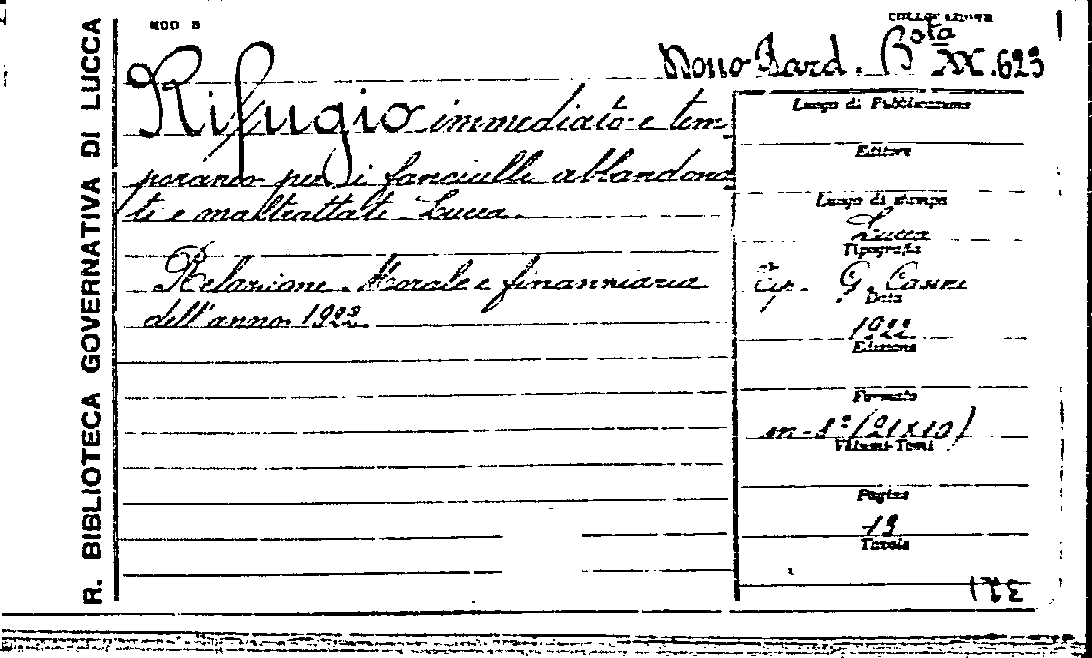 R. BIBLIOTECA GOVERNATIVA DI LUCCA
MOD B
COLLOCAZIONE
Bard. Bta XX.623
Rifugio immediato e tem
poraneo per i fanciulli abbandona
ti e maltrattati Lucca.
Relazione Morale e finanziaria
dell'anno 1922
Luogo di Pubblicazione
Editore
Luogo di stampa
Lucca
Tipografia
Tip. G. Casini
Data
1922
Edizione
Formato
in-8º (21x10)
Volumi-Tomi
Pagine
13
Tavole